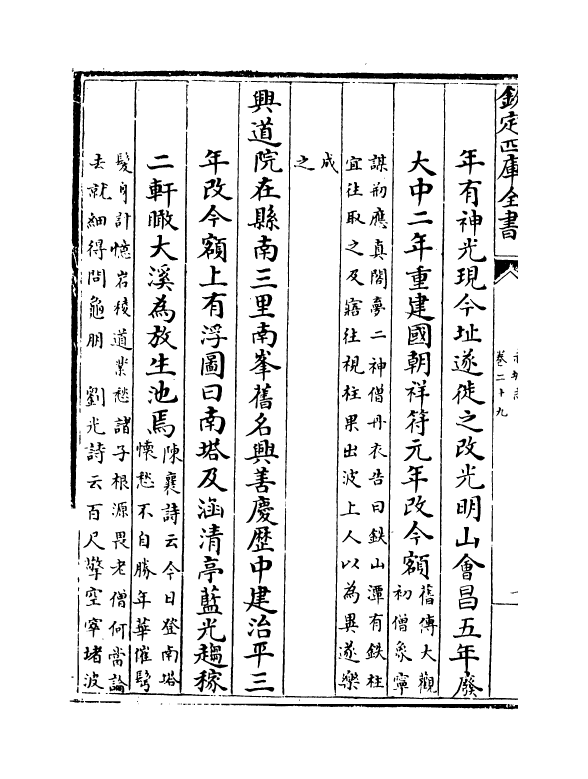 欽定四庫全書
卷二十九
年有神光現今址遂徙之改光明山會昌五年廢
大中二年重建國朝祥符元年改今額
舊傳大觀
初僧象寧
謀朔應真閣夢二神僧丹衣告曰鉄山潭有鉄柱
宜往取之及寤往視柱果出波上人以為異遂樂
成
之
興道院在縣南三里南峯舊名興善慶歴中建治平三
年改今額上有浮圖曰南塔及涵清亭藍光趨稼
二軒瞰大溪為放生池焉
陳襄詩云今日登南塔
懷愁不自勝年華催鬂
髮身計憶岩稜道業愁諸子根源畏老僧何當論
去就細得問龜朋　劉光詩云百尺擎空窣堵波